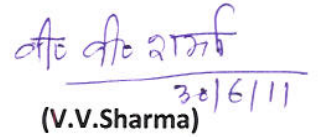 वी० वी० शर्मा
30/6/11
(V.V.Sharma)